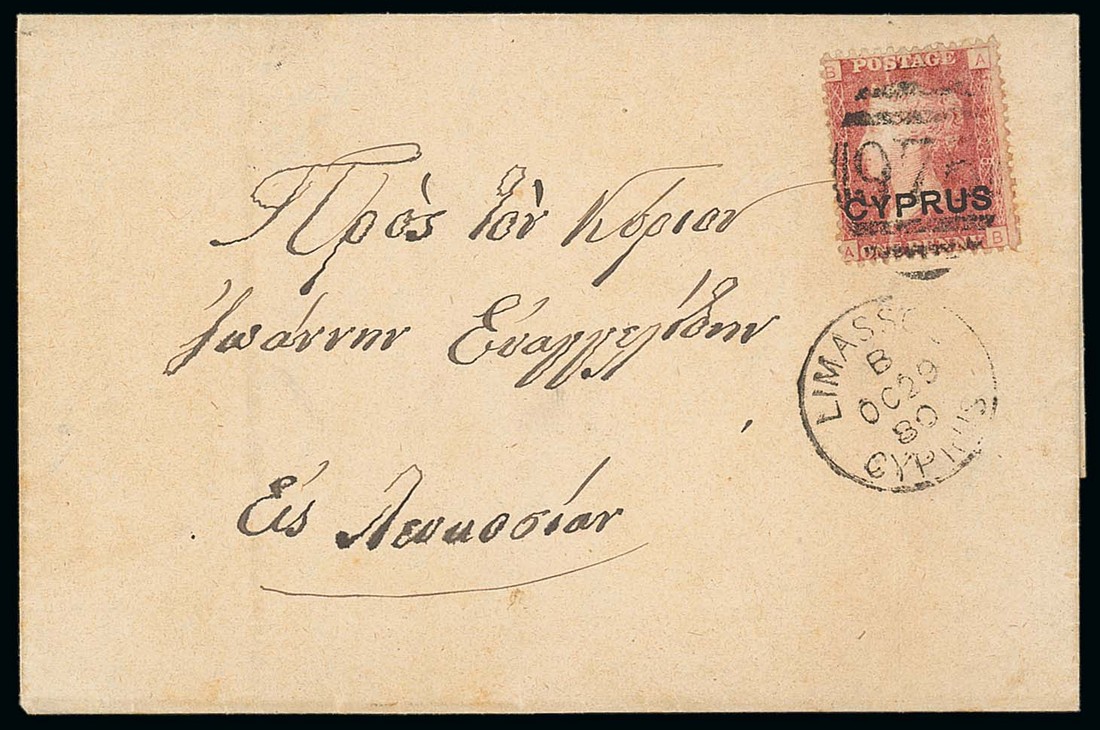 POSTAGE
B A
CYPRUS
A B
Πρὸς τὸν Κύριον
Ἰωάννην Εὐαγγελίδην
Εἰς Λευκοσίαν
LIMASSO
B
OC 29
80
CYPRUS